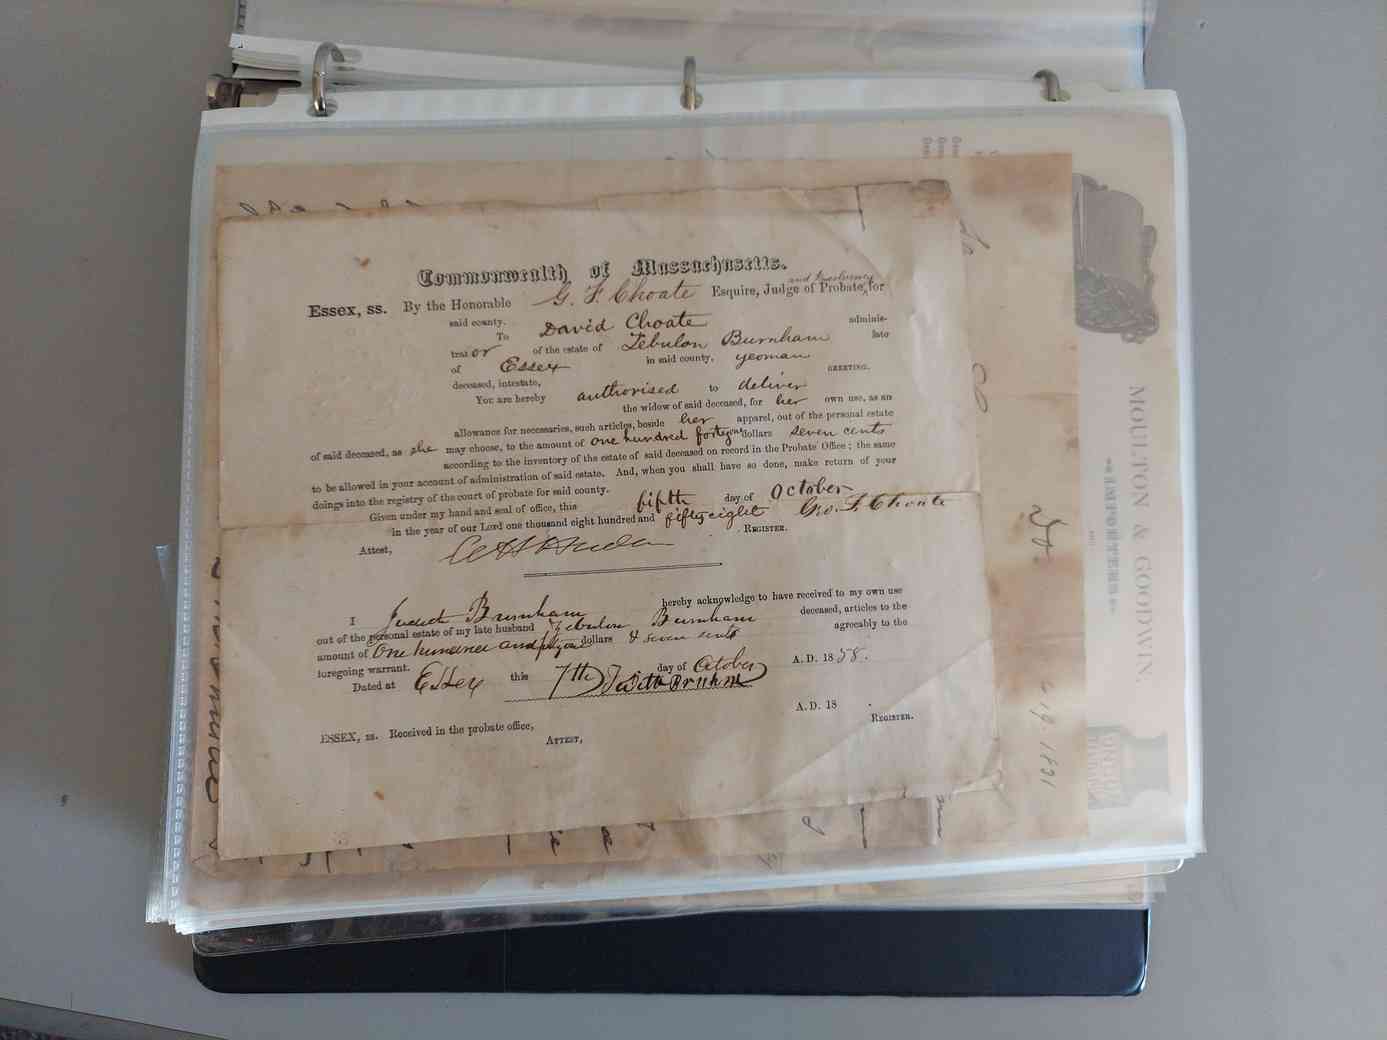 Commonwealth of Massachusetts.
and Insolvency
Essex, ss. By the Honorable G. F. Choate Esquire, Judge of Probate, for
said county.
To David Choate adminis-
trat or of the estate of Zebulon Burnham late
of Essex in said county, yeoman
deceased, intestate, GREETING.
You are hereby authorised to deliver
the widow of said deceased, for her own use, as an
allowance for necessaries, such articles, beside her apparel, out of the personal estate
of said deceased, as she may choose, to the amount of one hundred forty one dollars seven cents
according to the inventory of the estate of said deceased on record in the Probate Office; the same
to be allowed in your account of administration of said estate. And, when you shall have so done, make return of your
doings into the registry of the court of probate for said county.
Given under my hand and seal of office, this fifth day of October
in the year of our Lord one thousand eight hundred and fifty eight Geo. F. Choate
Attest, REGISTER.
I Judith Burnham hereby acknowledge to have received to my own use
out of the personal estate of my late husband Zebulon Burnham deceased, articles to the
amount of One hundred and dollars & seven cents agreeably to the
foregoing warrant.
Dated at Essex this 7th day of October A.D. 18 58.
Judith
A.D. 18 .
ESSEX, ss. Received in the probate office,
ATTEST, REGISTER.
MOULTON & GOODWIN,
IMPORTERS
1831